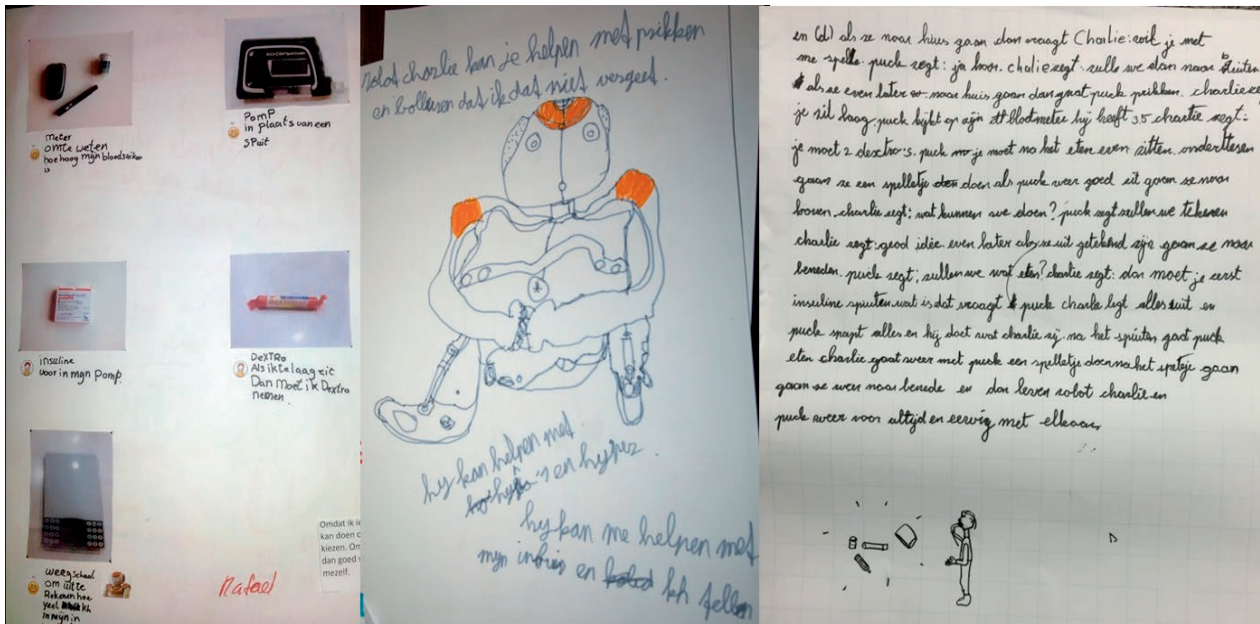 meter
omte weten
hoe hoog mijn bloedsuiker
is
Pomp
in plaats van een
spuit
insuline
voor in mijn Pomp.
Dextro
Als ik te laag zit
Dan moet ik Dextro
nemen.
weegschaal
om uit te
Rekenen hoe
veel kh
in mijn
Rafael
Omdat ik
kan doen
kiezen. Om
dan goed
mezelf.
robot charlie kan je helpen met prikken
en bolussen dat ik dat niet vergeet.
hy kan helpen met
hypo's en hyper
hy kan me helpen met
mijn en kh tellen
en (d) als ze naar huis gaan dan vraagt Charlie: wil je met
me spelle. puck zegt: ja hoor. chalie zegt. zulle we dan naar buiten
als ze even later naar huis gaan dan gaat puck prikken. charlie
je zit laag. puck kijkt op zijn blodmeter hij heeft 3.5 charlie zegt:
je moet 2 dextro's. puck je moet na het eten even zitten. ondertussen
gaan ze een spelletje doen als puck weer goed zit gaan ze naar
boven. charlie zegt: wat kunnen we doen? puck zegt zullen we tekenen
charlie zegt: goed idée. even later als ze uit getekend zijn gaan ze naar
beneden. puck zegt; zullen we wat eten? charlie zegt: dan moet je eerst
insuline spuiten. wat is dat vraagt puck charlie legt alles uit en
puck snapt alles en hij doet wat charlie zij. na het spuiten gaat puck
eten charlie gaat weer met puck een spelletje doen na het speletje gaan
gaan ze weer naar benede en dan leven robot charlie en
puck weer voor altijd en eeuwig met elkaar.